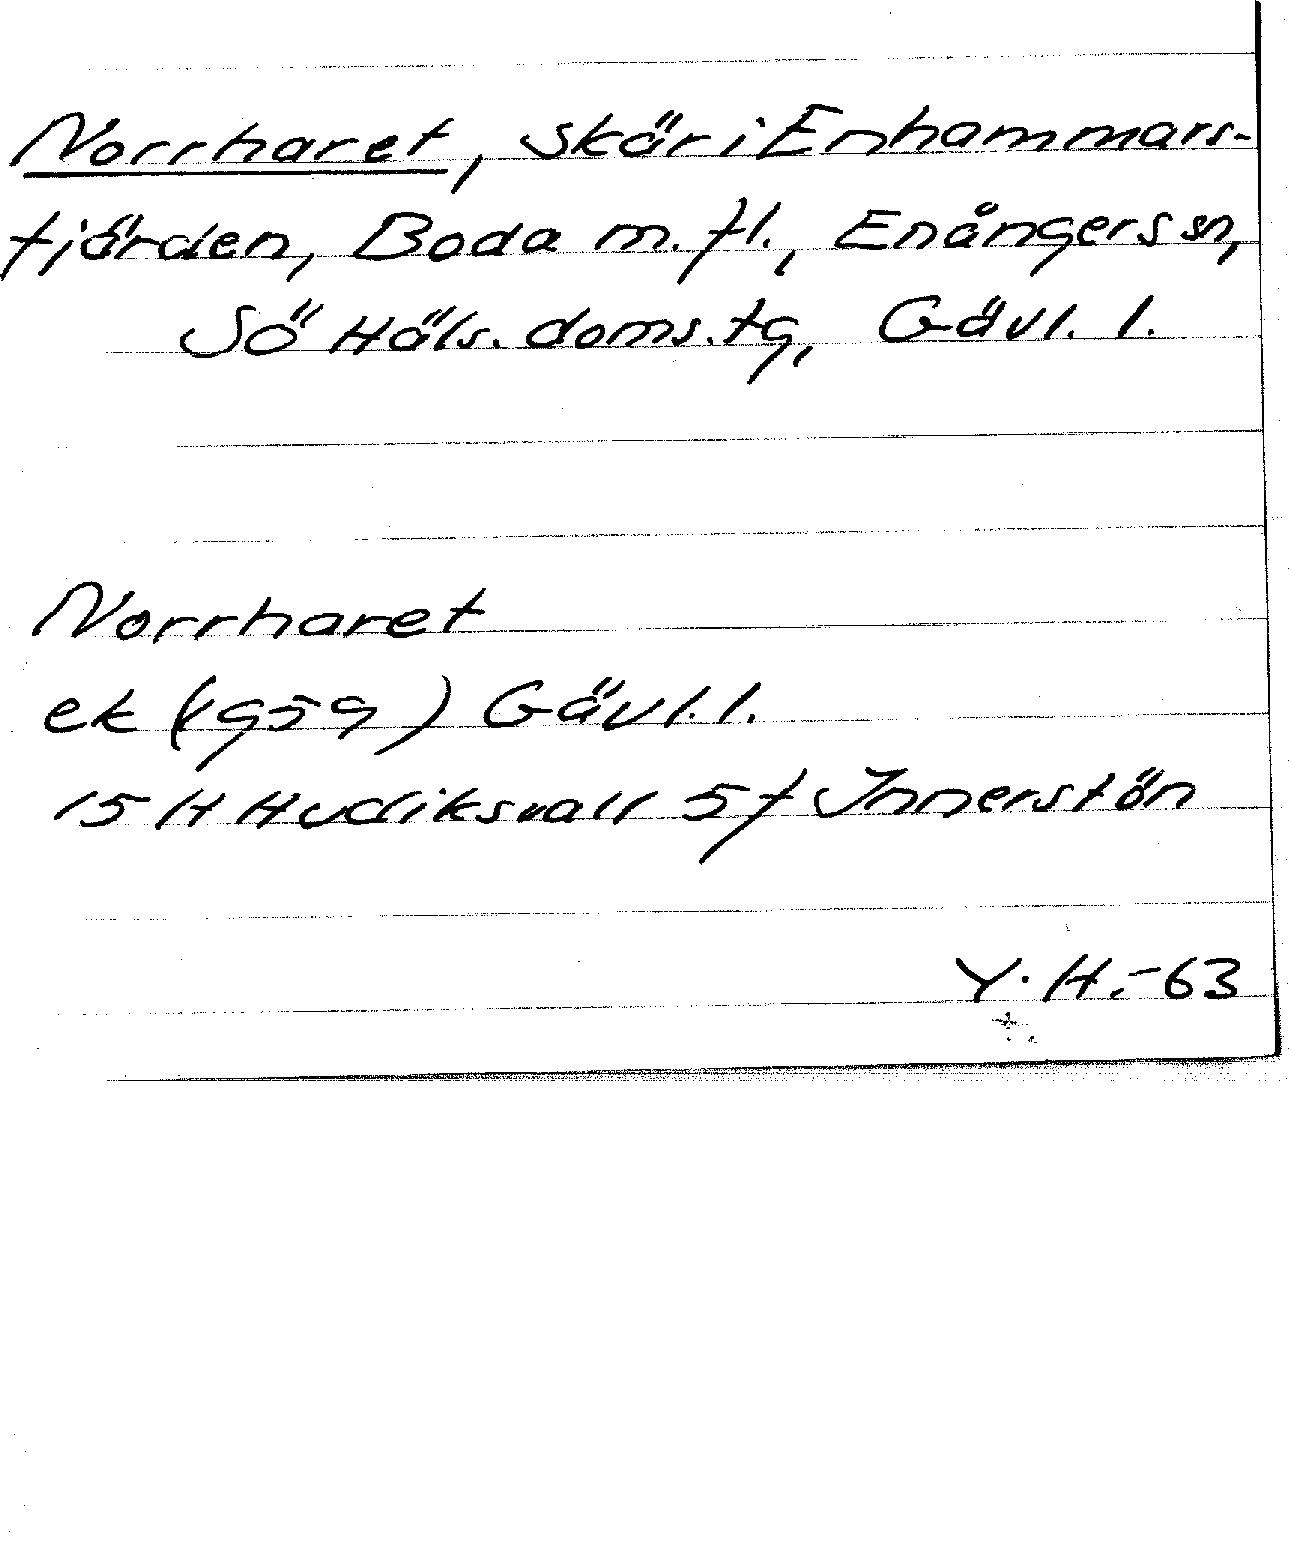 Norrharet, Skär i Enhammars-
fjärden, Boda m. fl., Enångers sn,
Sö Häls. doms. tg, Gävl. l.
Norrharet
ek (1959) Gävl. l.
15 H Hudiksvall 5 f Innerstön
Y. H. - 63